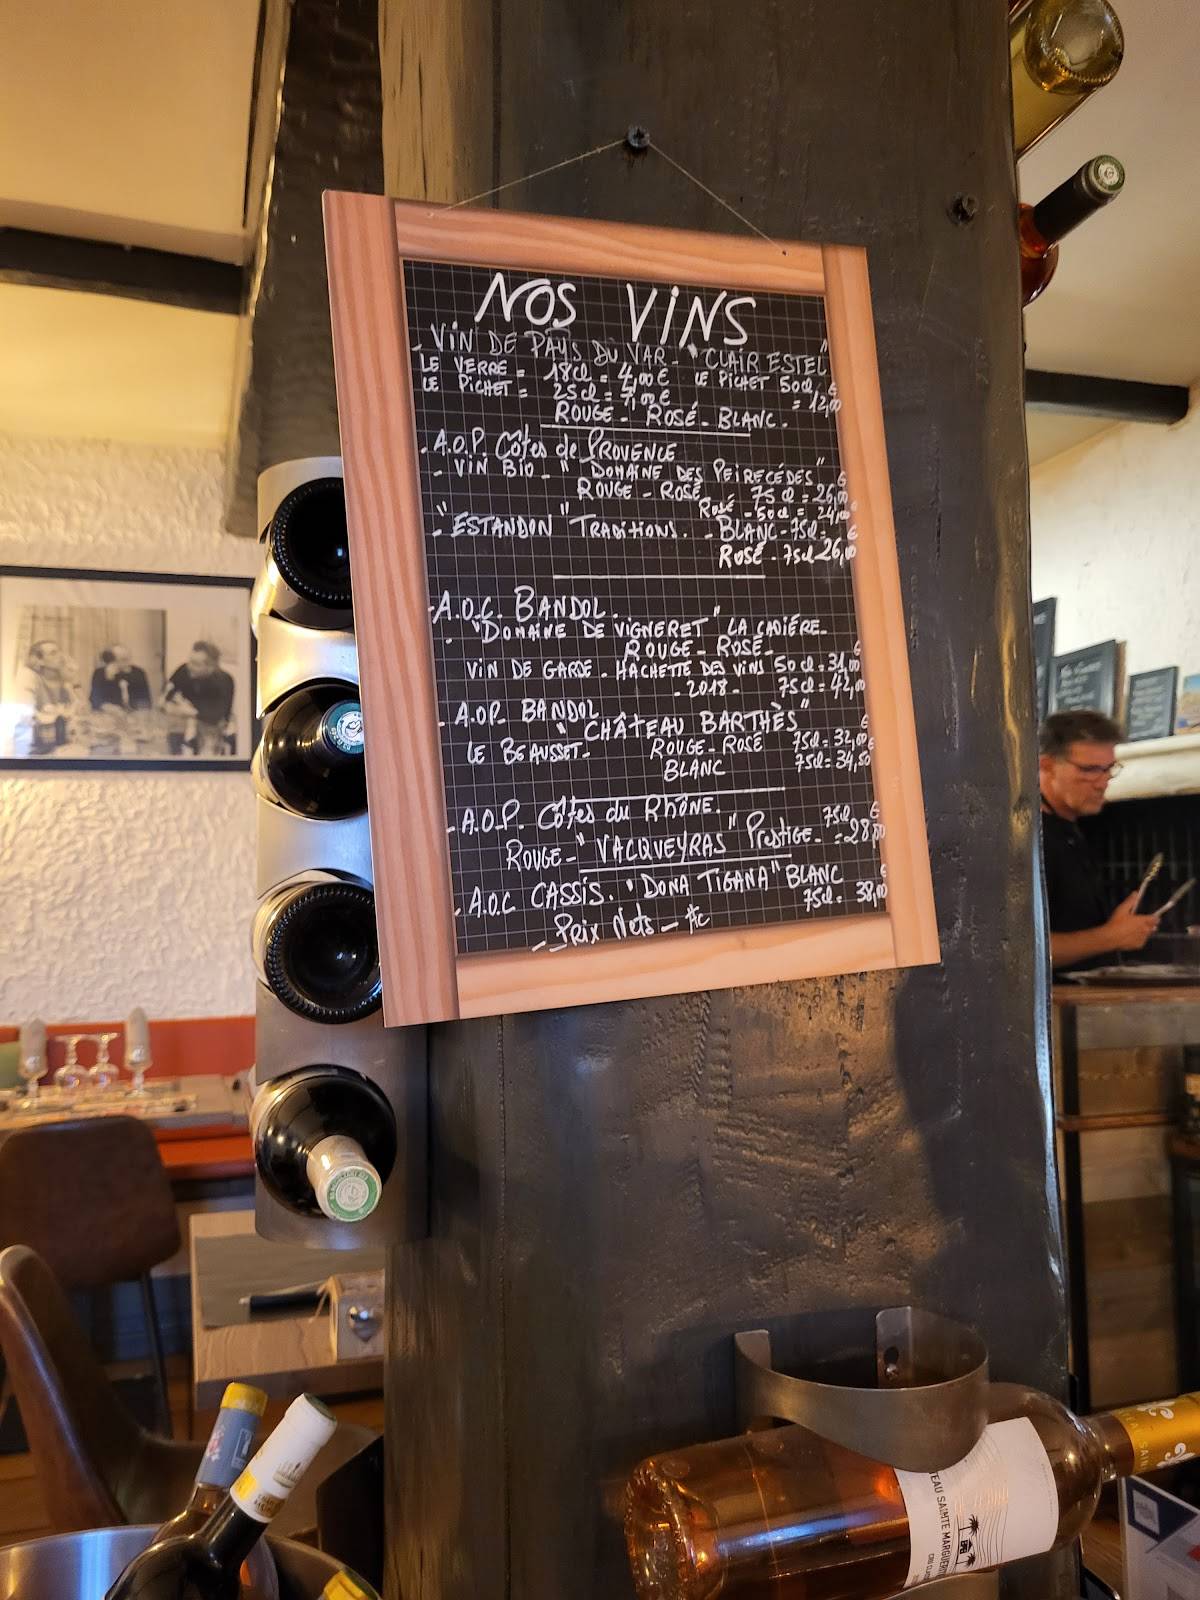 NOS VINS
- VIN DE PAYS DU VAR - "CLAIR ESTEL"
LE VERRE = 18cl = 4,00€ LE PICHET 50cl €
LE PICHET = 25cl = 7,00€ = 12,00
ROUGE - ROSÉ - BLANC.
- A.O.P. Côtes de PROVENCE
- VIN BIO - "DOMAINE DES PEIRECÉDES" €
ROUGE - ROSÉ 75cl = 26,00
Rosé - 50cl = 24,00
- "ESTANDON" TRADITIONS. - BLANC - 75cl = €
ROSÉ - 75cl 26,00
- A.O.C. BANDOL.
- "DOMAINE DE VIGNERET" LA CADIÉRE -
ROUGE - ROSÉ - €
VIN DE GARDE - HACHETTE DES VINS 50cl = 31,00
- 2018 - 75cl = 42,00
- A.O.P. BANDOL
"CHÂTEAU BARTHÈS" €
LE BEAUSSET - ROUGE - ROSÉ 75cl = 32,00€
BLANC 75cl = 34,50
- A.O.P. Côtes du Rhône. 75cl €
ROUGE - "VACQUEYRAS" Prestige - = 28,00
- A.O.C CASSIS. "DONA TIGANA" BLANC €
75cl = 38,00
- Prix Nets -
CHATEAU SAINTE MARGUERITE